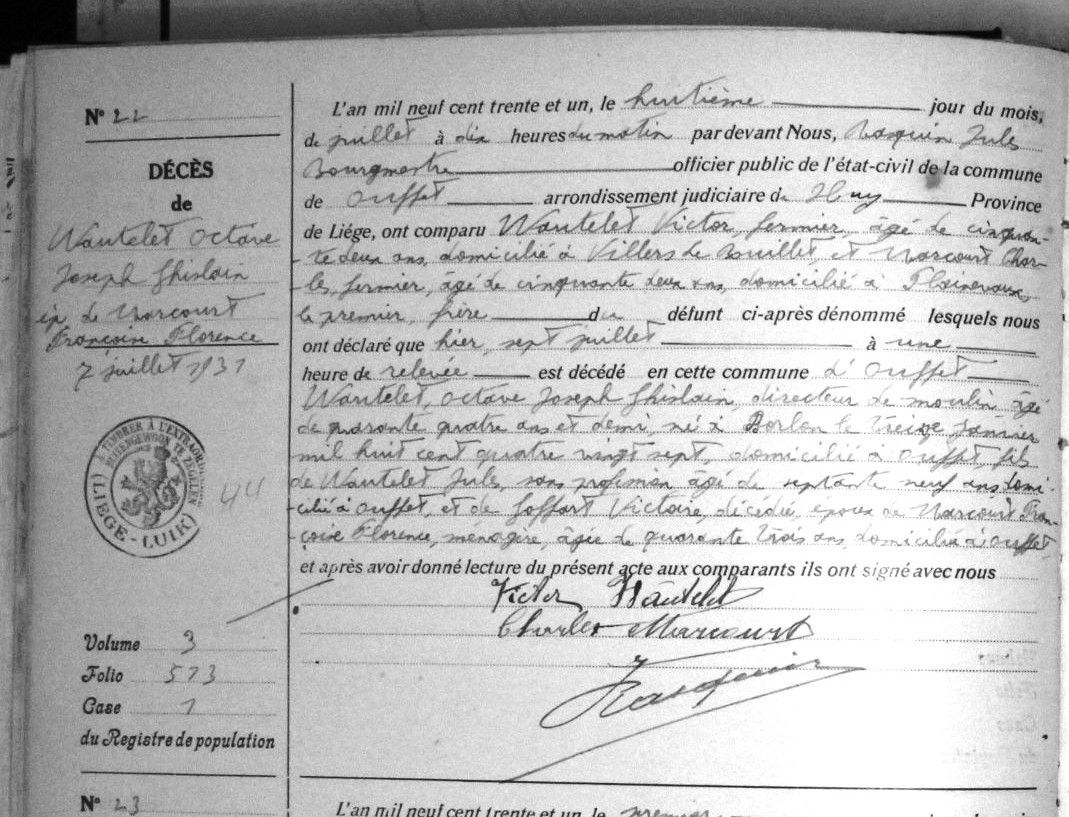 N° 22
DÉCÈS
de
Wautelet Octave
Joseph Ghislain
ép de Marcourt
Françoise Florence
7 juillet 1931
TIMBRER À L'EXTRAORD
BUITENGEWOON TE ZEGELEN
(LIEGE - LUIK)
44
Volume 3
Folio 573
Case 1
du Registre de population
L'an mil neuf cent trente et un, le huitième jour du mois,
de juillet à dix heures du matin pardevant Nous, Rasquin Jules
Bourgmestre officier public de l'état-civil de la commune
de Ouffet arrondissement judiciaire de Huy Province
de Liége, ont comparu Wautelet Victor, fermier, âgé de cinquan-
-te deux ans, domicilié à Villers le Bouillet, et Marcourt Char-
les, fermier, âgé de cinquante deux ans, domicilié à Plainevaux,
le premier, frère du défunt ci-après dénommé lesquels nous
ont déclaré que hier, sept juillet à une
heure de relevée est décédé en cette commune d'Ouffet
Wautelet, Octave Joseph Ghislain, directeur de moulin âgé
de quarante quatre ans et demi, né à Borlon le treize janvier
mil huit cent quatre vingt sept, domicilié à Ouffet, fils
de Wautelet Jules, sans profession âgé de septante neuf ans domi-
-cilié à Ouffet, et de Goffart Victoire, décédée, époux de Marcourt Fran-
çoise Florence, ménagère, âgée de quarante trois ans, domiciliée à Ouffet
et après avoir donné lecture du présent acte aux comparants ils ont signé avec nous
Victor Wautelet
Charles Marcourt
J Rasquin
N° 23
L'an mil neuf cent trente et un, le premier